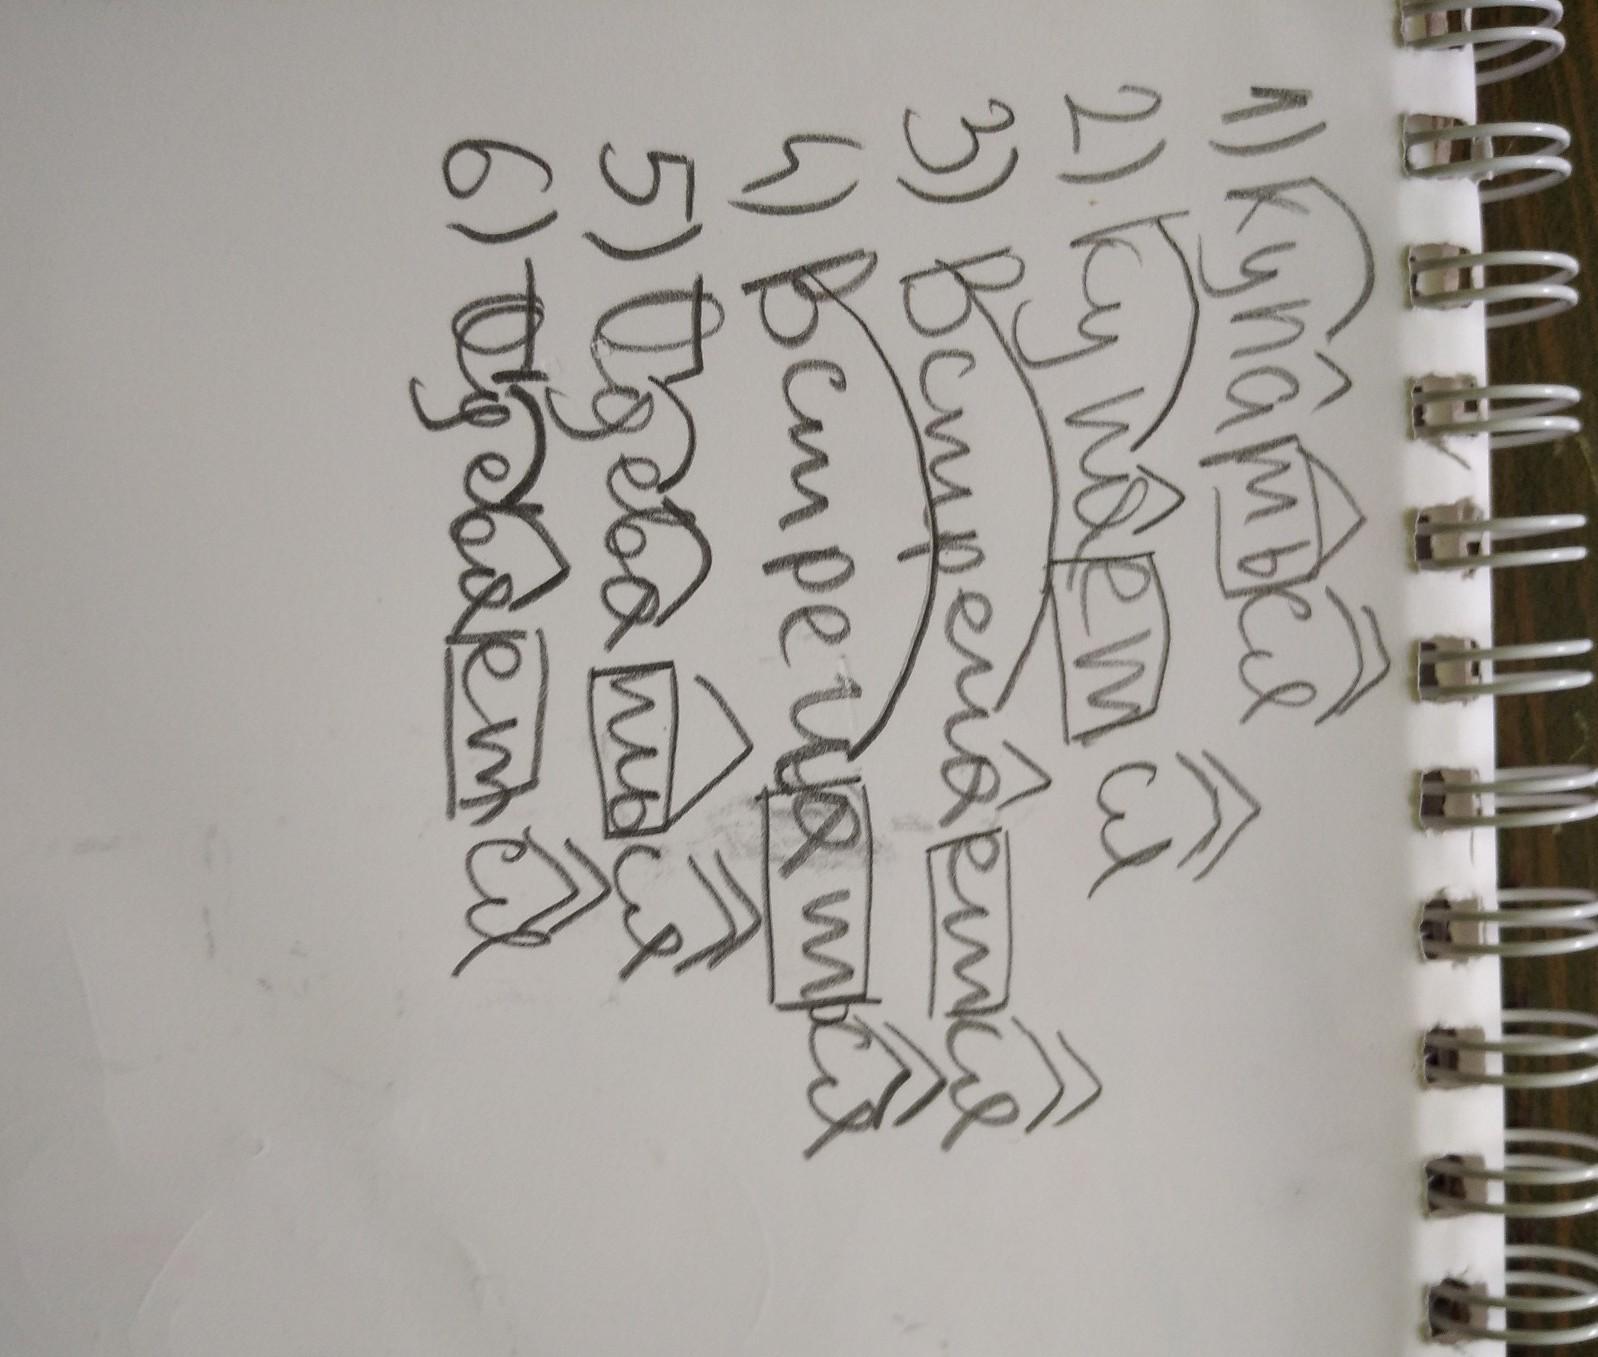 1) Купаться
2) Купается
3) Встречается
4) Встречаться
5) Одеваться
6) Одевается